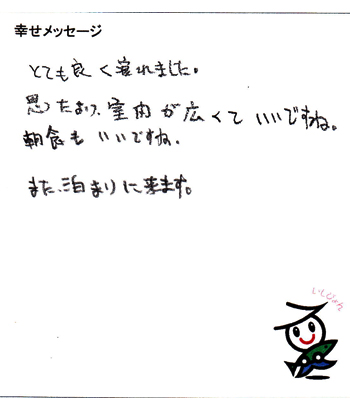 幸せメッセージ
とても良く寝れました。
思ったより、室内が広くていいですね。
朝食もいいですね。
また、泊まりに来ます。